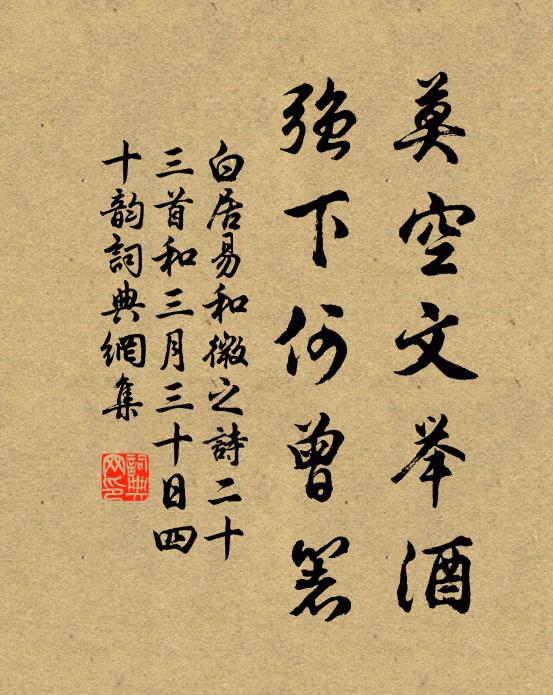 莫空文举酒
强下何曾箸
白居易和微之詩二十
三首和三月三十日四
十韵詞典網集
詞典网印